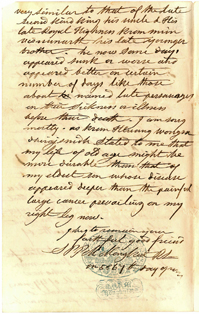 very similar to that of the late
Second King
his uncle & His
late Royal Highness Krom
his late younger
brother he now some days
appeared sunk or worse and
appeared better on certain
number of days like those
about named late personages
on their sickness or illness
before their death. I am sorry
as Krom
stated to me that
my life of old age might be
more durable than that of
my eldest son whose disease
appeared deeper than the painful
large cancer prevailing on my
right leg now.
I beg to remain your
faithful good friend
day of